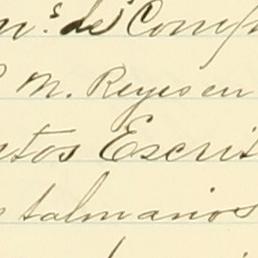 m.s de Comp
M. Reyes en
ntos Escrit
talmanios